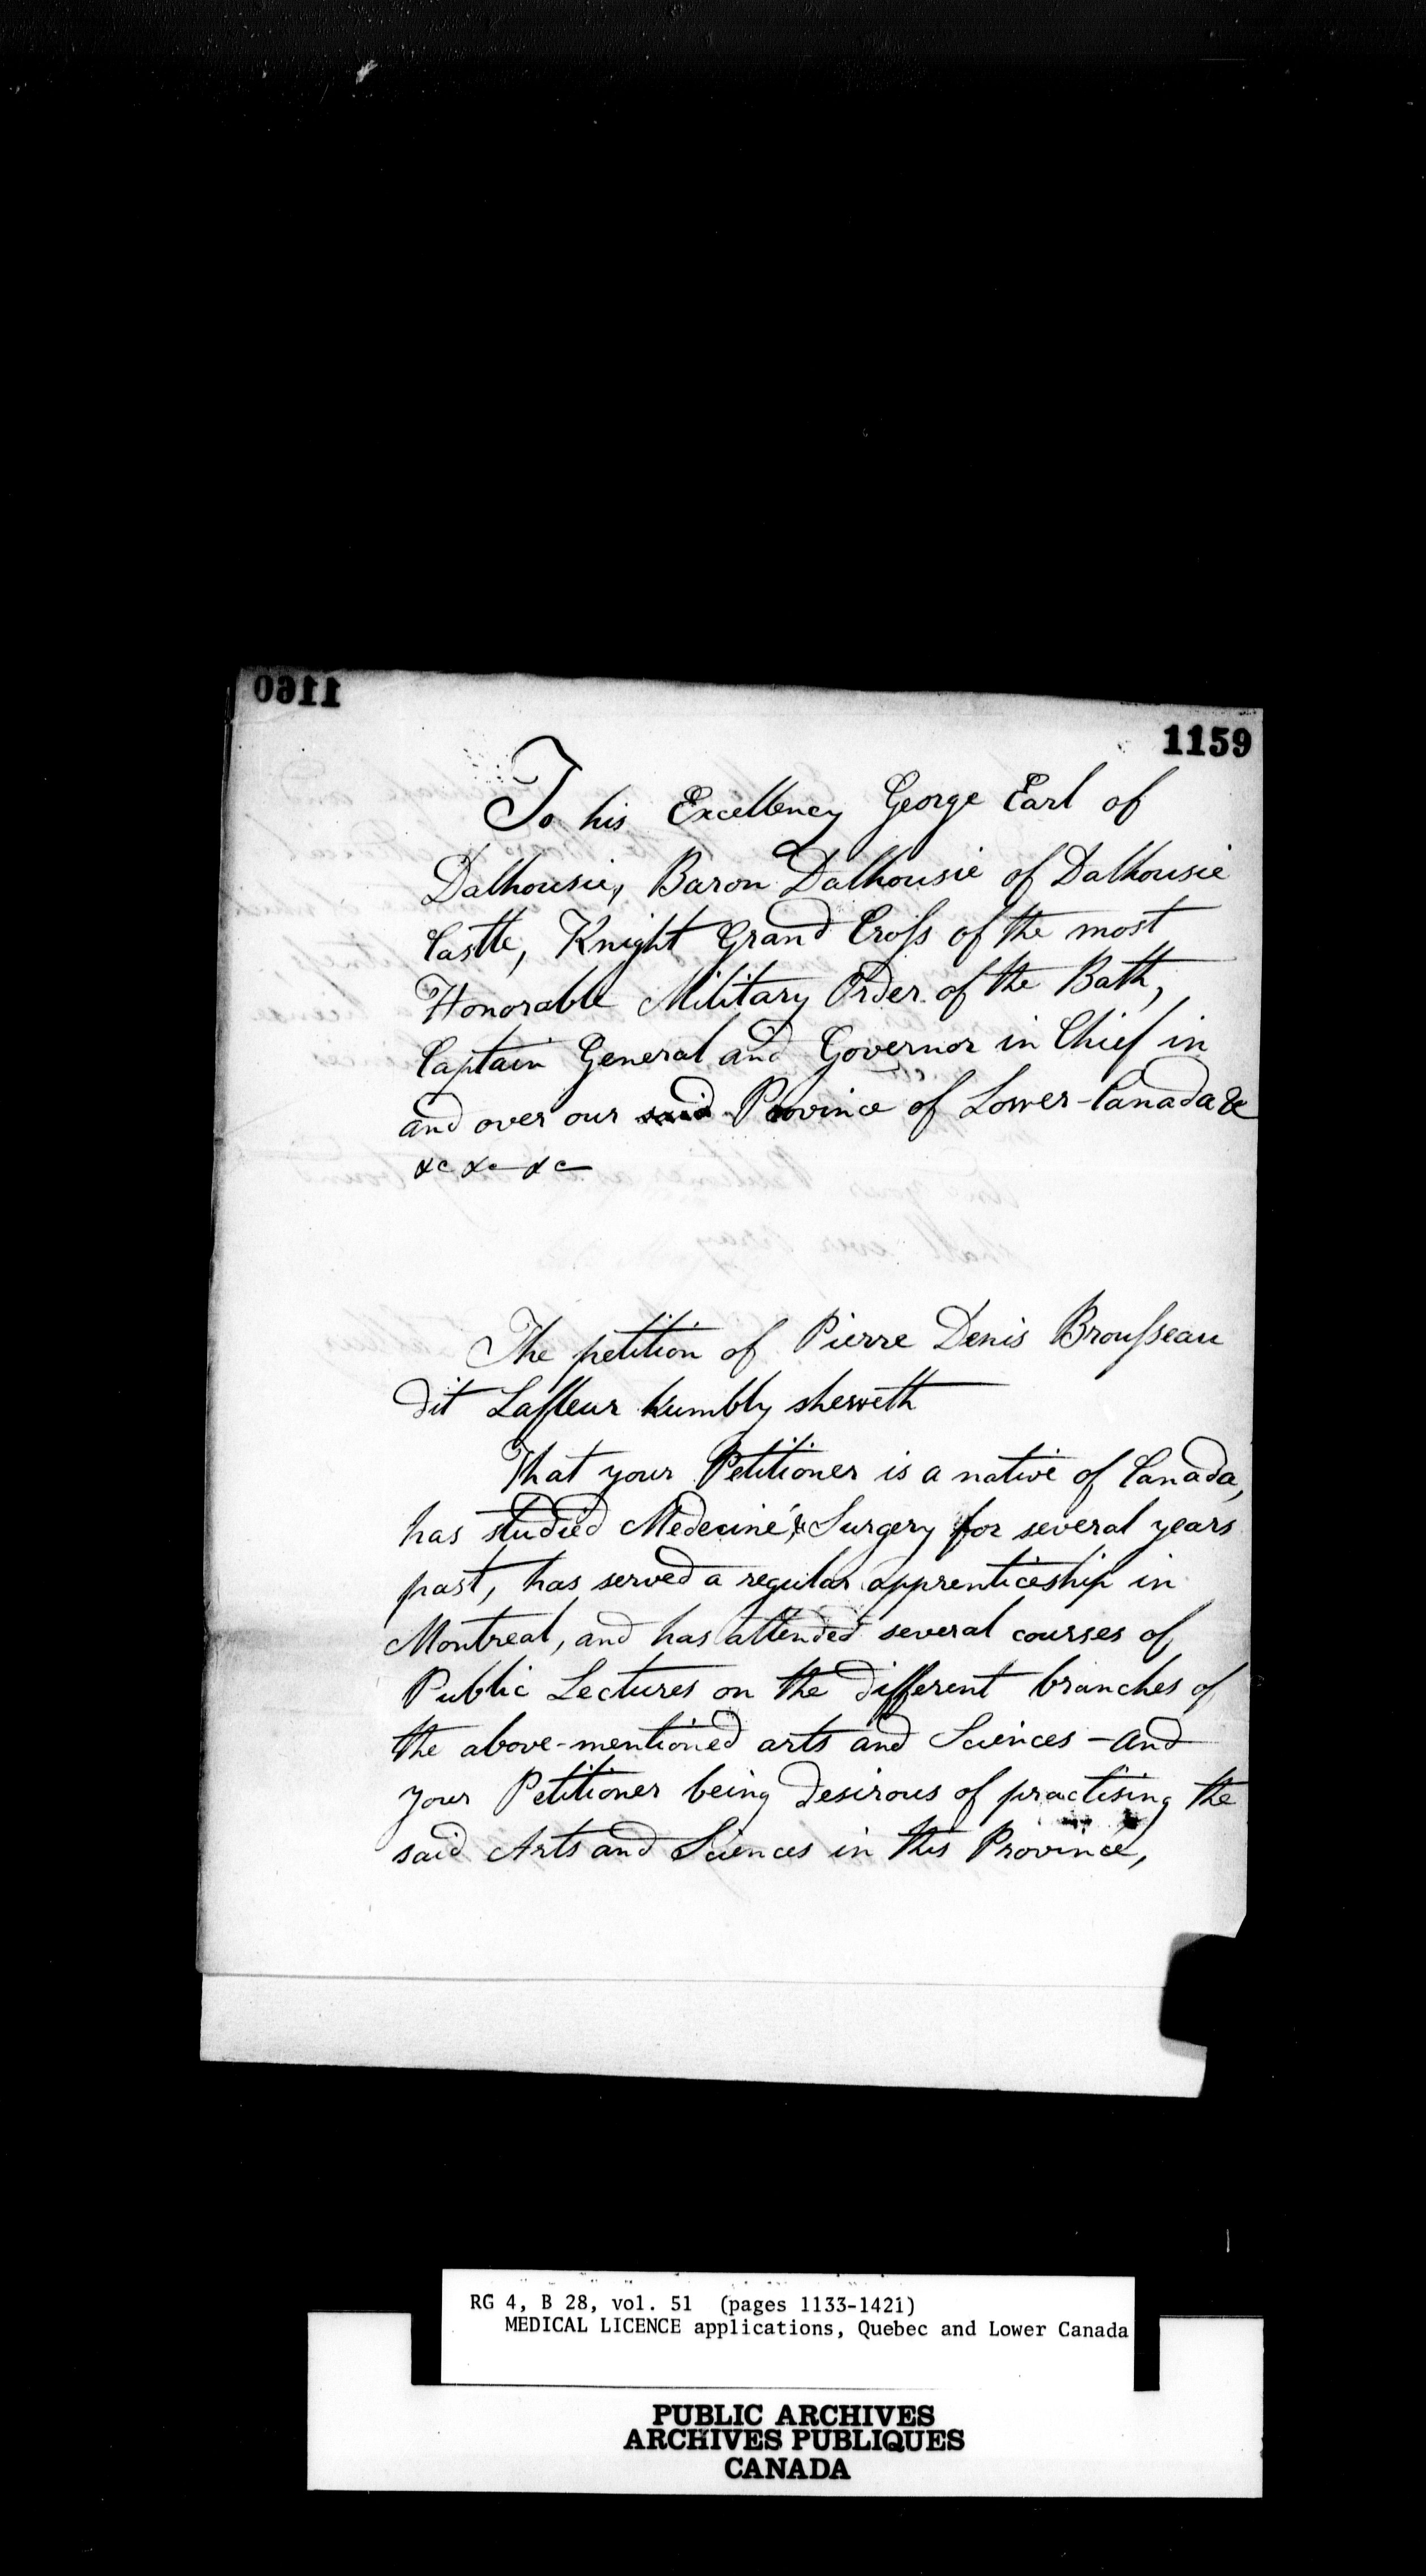 1160
1159
To his Excellency George Earl of
Dalhousie, Baron Dalhousie of Dalhousie
Castle, Knight Grand Cross of the most
Honorable Military Order of the Bath,
Captain General and Governor in Chief in
and over our said Province of Lower-Canada &c
&c &c &c
The petition of Pierre Denis Brousseau
dit Lafleur humbly sheweth
That your Petitioner is a native of Canada,
has studied Medecine & Surgery for several years
past, has served a regular apprenticeship in
Montreal, and has attended several courses of
Public Lectures on the different branches of
the above-mentioned arts and Sciences - and
your Petitioner being desirous of practising the
said Arts and Sciences in this Province,
RG 4, B 28, vol. 51 (pages 1133-1421)
MEDICAL LICENCE applications, Quebec and Lower Canada
PUBLIC ARCHIVES
ARCHIVES PUBLIQUES
CANADA